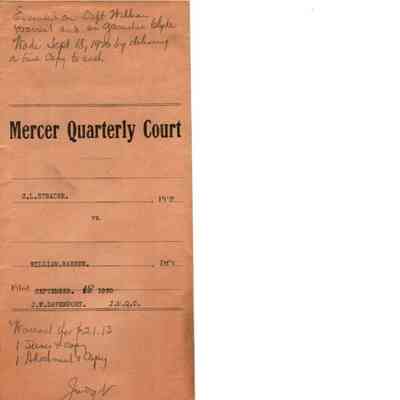 Executed on Deft William
Warren and on Garnishee Clyde
Wade Sept 18, 1930 by delivering
a true Copy to each.
Mercer Quarterly Court
Pl'ff
vs.
WILLIAM.WARREN. Def't
Filed SEPTEMBER. 18 1930
J.W.DAVENPORT. J.M.Q.C.
Warrant for $21.13
1 Juror & copy
1 Attachment & Copy